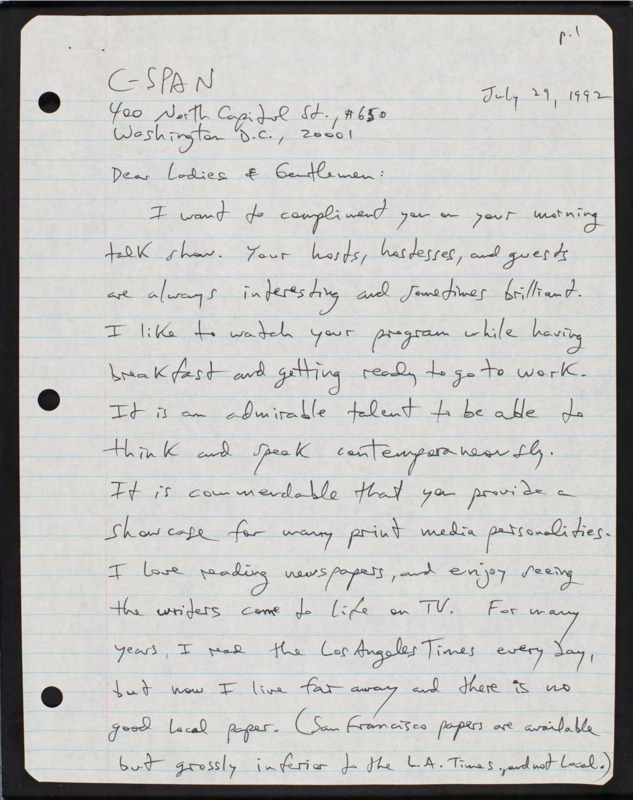 p.1
C-SPAN
July 29, 1992
400 North Capitol St., #650
Washington D.C., 20001
Dear Ladies & Gentlemen:
I want to compliment you on your morning
talk show. Your hosts, hostesses, and guests
are always interesting and sometimes brilliant.
I like to watch your program while having
breakfast and getting ready to go to work.
It is an admirable talent to be able to
think and speak contemporaneously.
It is commendable that you provide a
showcase for many print media personalities.
I love reading newspapers, and enjoy seeing
the writers come to life on TV. For many
years, I read the Los Angeles Times every day,
but now I live far away and there is no
good local paper. (San Francisco papers are available
but grossly inferior to the L.A. Times, and not local.)